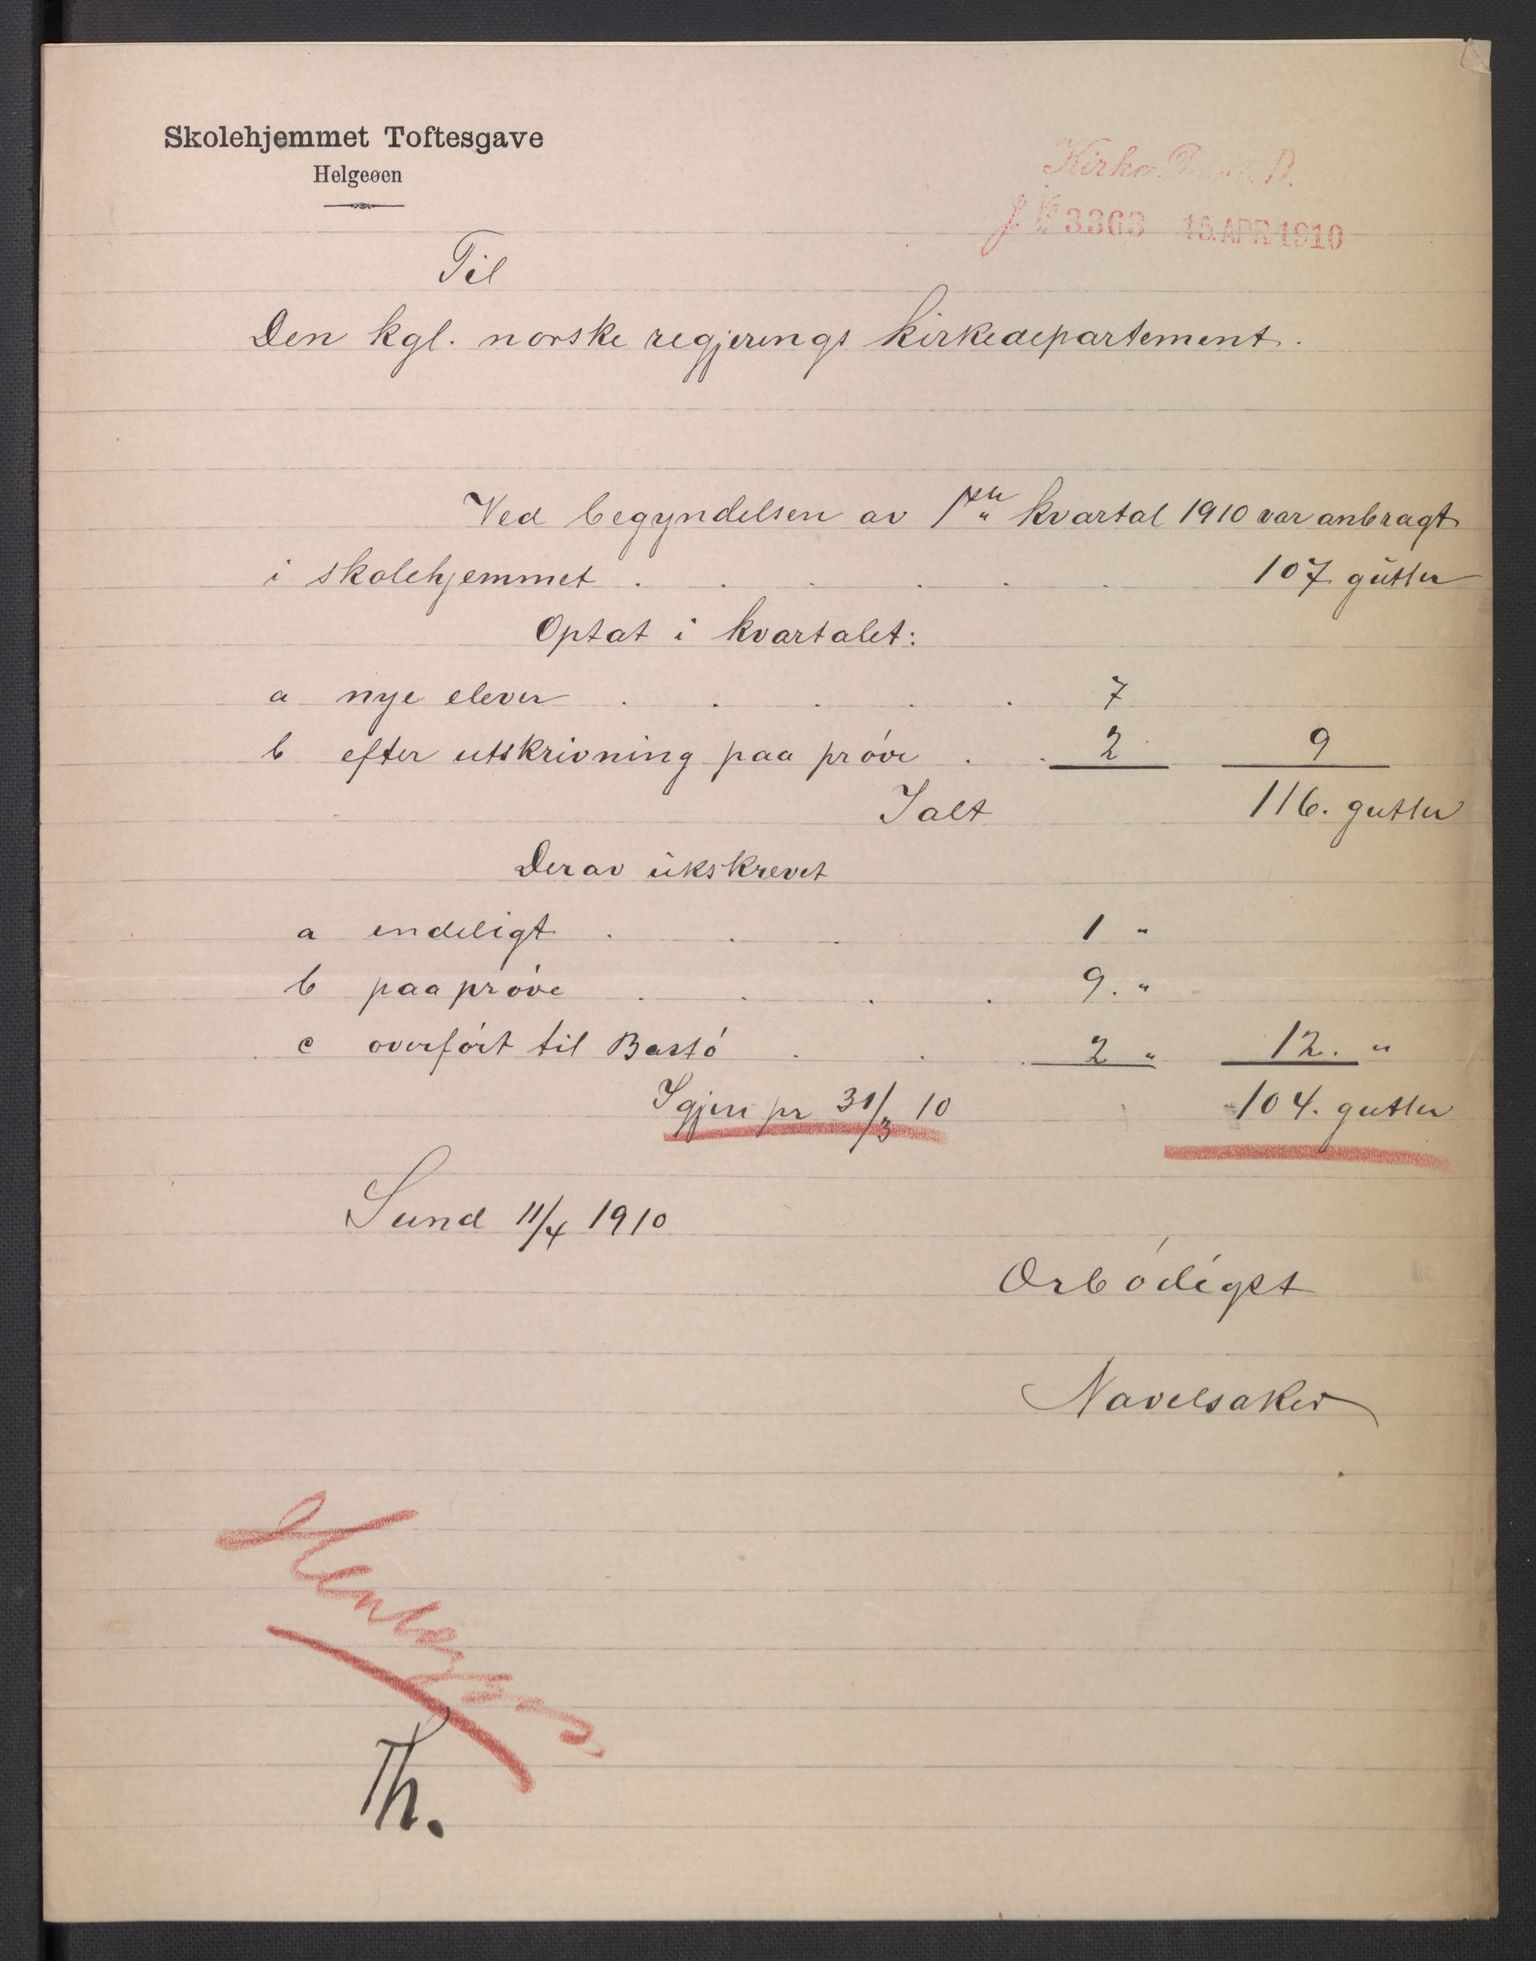 Skolehjemmet Toftesgave
Helgeøen
Kirke
3363 15. APR 1910
Til
Den kgl. norske regjerings kirkedepartement.
Ved begyndelsen av 1ste kvartal 1910 var anbragt
i skolehjemmet . . . . . . 107 gutter
Optat i kvartalet:
a nye elever . . . . . 7
b efter utskrivning paa prøve . . 2 9
Ialt 116. gutter
Derav utskrevet
a endeligt . . . 1 "
b paa prøve . . . . 9. "
c overført til Bastø . . . 2 " 12. "
Igjen pr 31/3 10 104. gutter
Sund 11/4 1910
Ærbødigst
Navelsaker
Henlægges
Th.